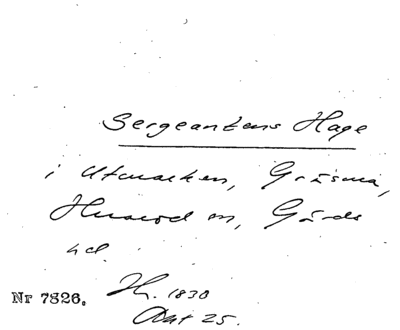 Sergeantens Hage
i Utmarken, Gräsma,
Husarod m, Gärds
hd.
Nr 7826. Hr. 1830
Akt 25.